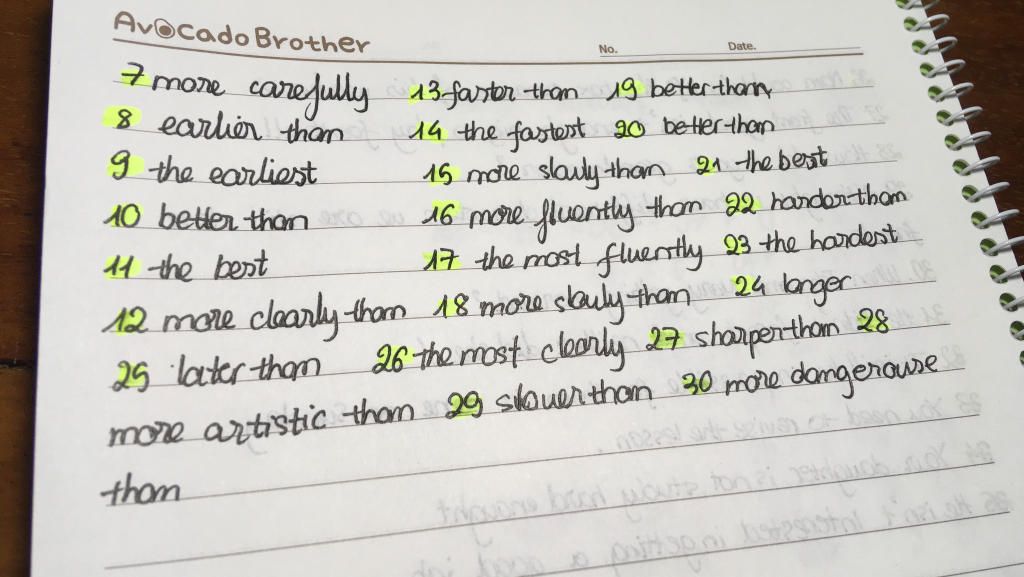 AvocadoBrother
No. Date.
7 more carefully 13 faster than 19 better than
8 earlier than 14 the fastest 20 better than
9 the earliest 15 more slouly than 21 the best
10 better than 16 more fluently than 22 harder than
11 the best 17 the most fluently 23 the hardest
12 more clearly than 18 more slouly than 24 longer
25 later than 26 the most clearly 27 sharper than 28
more artistic than 29 slouer than 30 more dangerouse
than